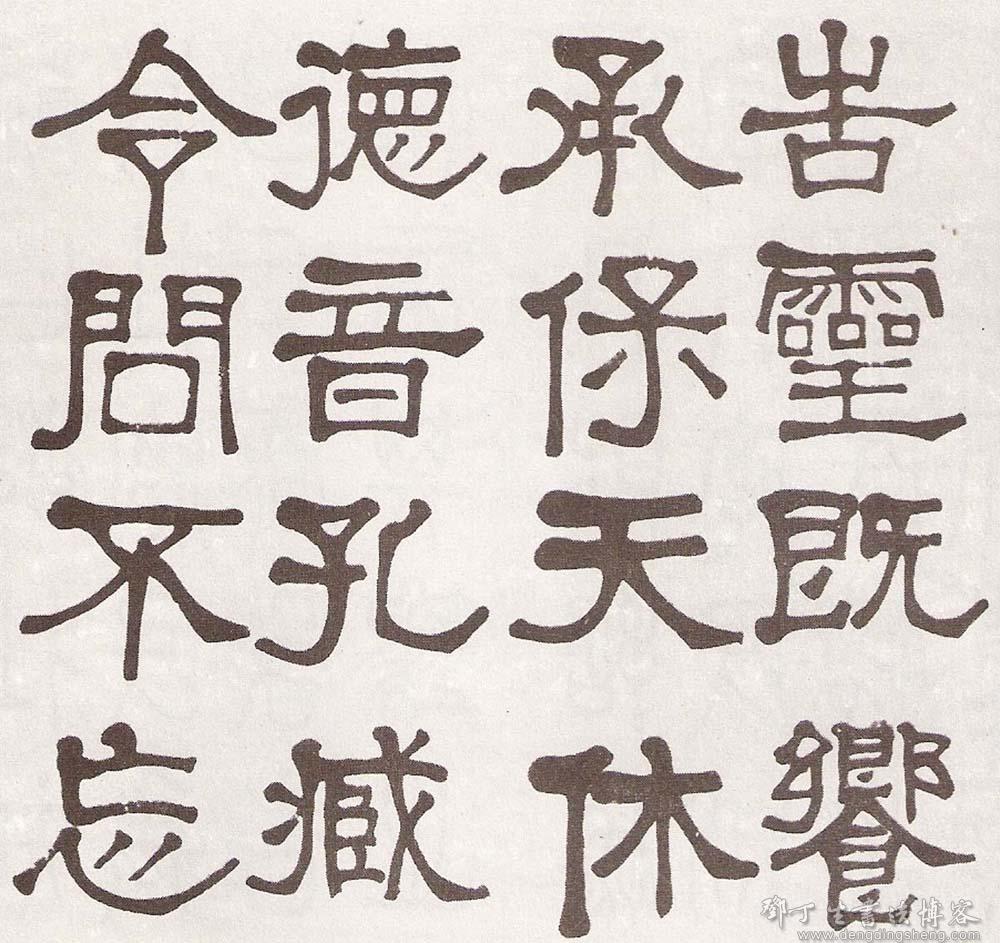 告靈既饗
承保天休
德音孔臧
令問不忘
鄧丁生書法博客
www.dengdingsheng.com